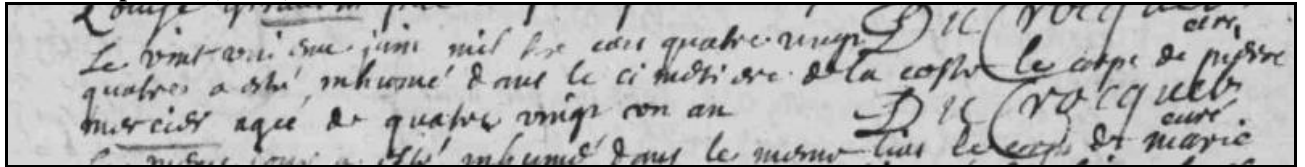 Louise
Le vint uni eme juin mil sise cens quatre vingt Du Crocquet
curé
quatres a esté inhumé dans le cimetiere de la coste le corps de pierre
mercier agé de quatre vingt un an Du Crocquet
curé
le meme jour a esté inhumé dans le meme lieu le corps de marie